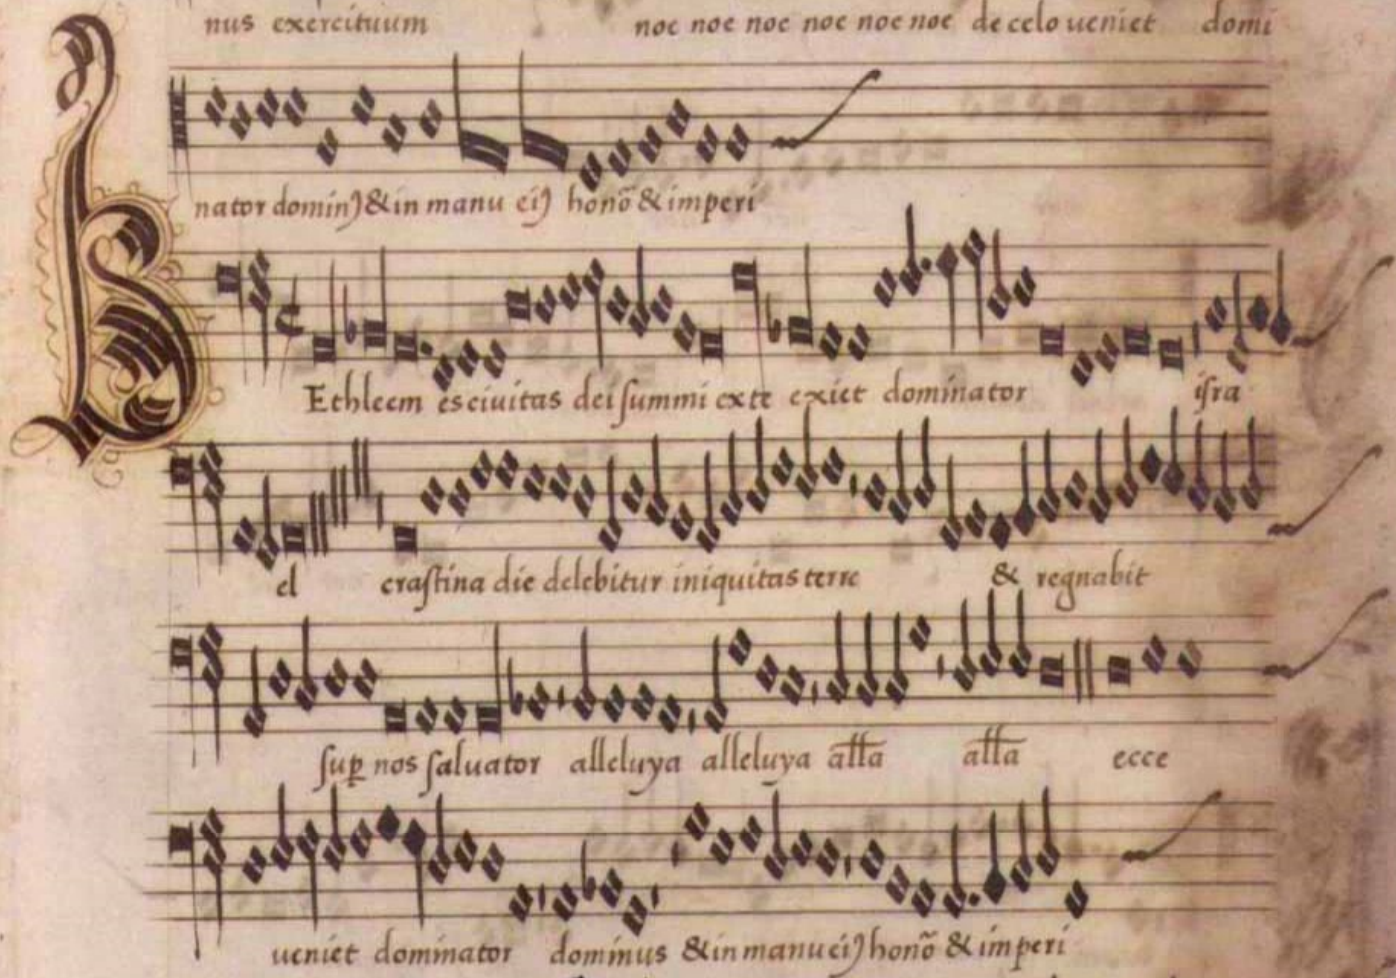 nus exercituum noe noe noe noe noe noe de celo ueniet domi
nator domin) & in manu ei) honõ & imperi
BEthleem es ciuitas dei ſummi ex te exiet dominator iſra
el craſtina die delebitur iniquitas terre & regnabit
ſuꝑ nos ſaluator alleluya alleluya all̅a all̅a ecce
ueniet dominator dominus & in manu ei) honõ & imperi